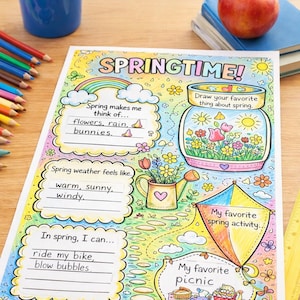 SPRINGTIME!
Spring makes me
think of...
flowers, rain,
bunnies.
Draw your favorite
thing about spring.
Spring weather feels like
warm, sunny,
windy.
My favorite
spring activity...
In spring, I can...
ride my bike,
blow bubbles.
My favorite
picnic